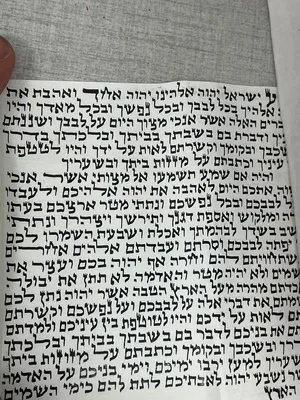 ישראל יהוה אלהינו יהוה אחד ואהבת את
אלהיך בכל לבבך ובכל נפשך ובכל מאדך והיו
האלה אשר אנכי מצוך היום על לבבך ושננתם
ודברת בם בשבתך בביתך ובלכתך בדרך
ובקומך וקשרתם לאות על ידך והיו לטטפת
עיניך וכתבתם על מזזות ביתך ובשעריך
והיה אם שמע תשמעו אל מצותי אשר אנכי
אתכם היום לאהבה את יהוה אלהיכם ולעבדו
לבבכם ובכל נפשכם ונתתי מטר ארצכם בעתו
ומלקוש ואספת דגנך ותירשך ויצהרך ונתתי
בשדך לבהמתך ואכלת ושבעת השמרו לכם
יפתה לבבכם וסרתם ועבדתם אלהים אחרים
להם וחרה אף יהוה בכם ועצר את
ולא יהיה מטר והאדמה לא תתן את יבולה
מהרה מעל הארץ הטבה אשר יהוה נתן לכם
את דברי אלה על לבבכם ועל נפשכם וקשרתם
לאות על ידכם והיו לטוטפת בין עיניכם ולמדתם
את בניכם לדבר בם בשבתך בביתך ובלכתך
ובשכבך ובקומך וכתבתם על מזוזות ביתך
למען ירבו ימיכם וימי בניכם על האדמה
נשבע יהוה לאבתיכם לתת להם כימי השמים
הארץ